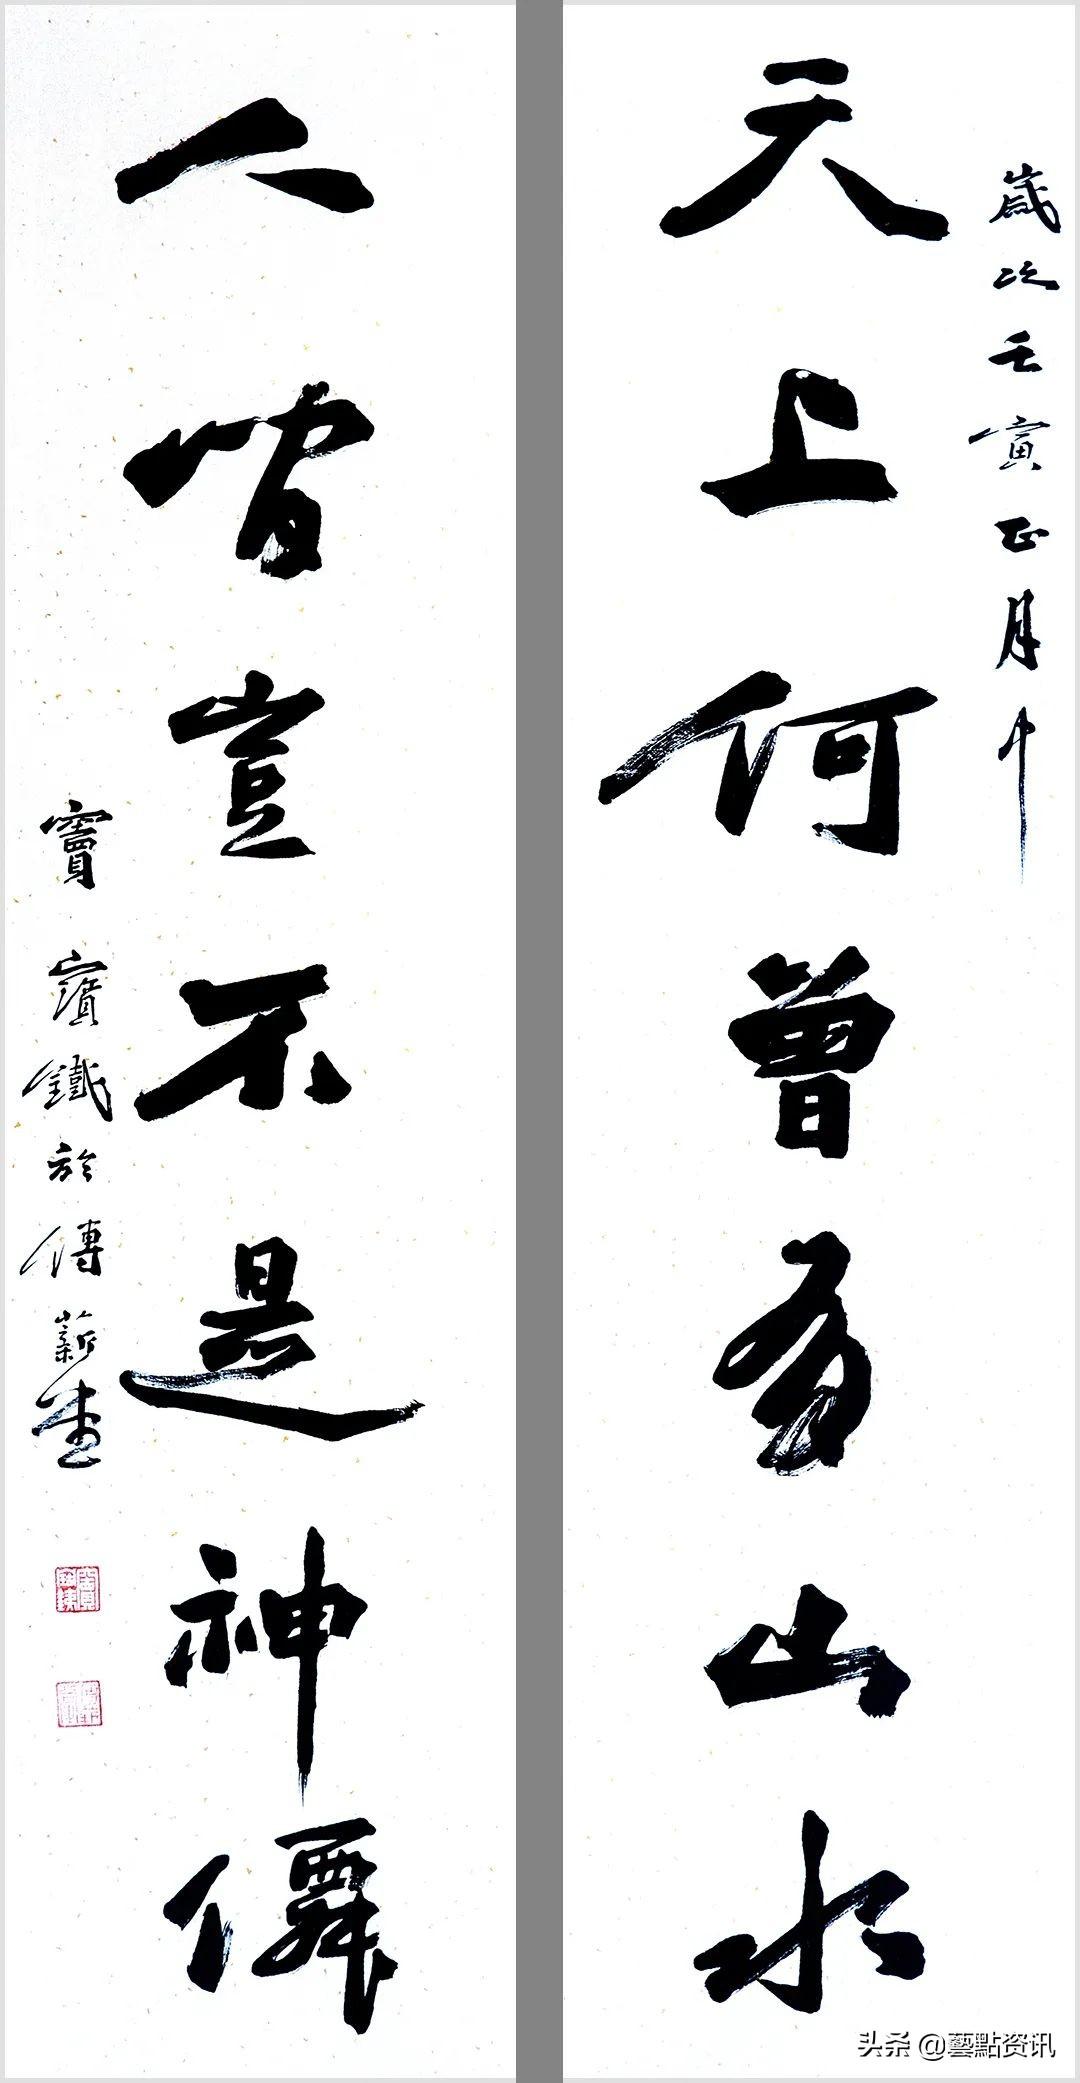 歲次壬寅正月中
天上何曾有山水
人間豈不是神僊
竇寶鐵於傳薪堂
头条 @藝點资讯